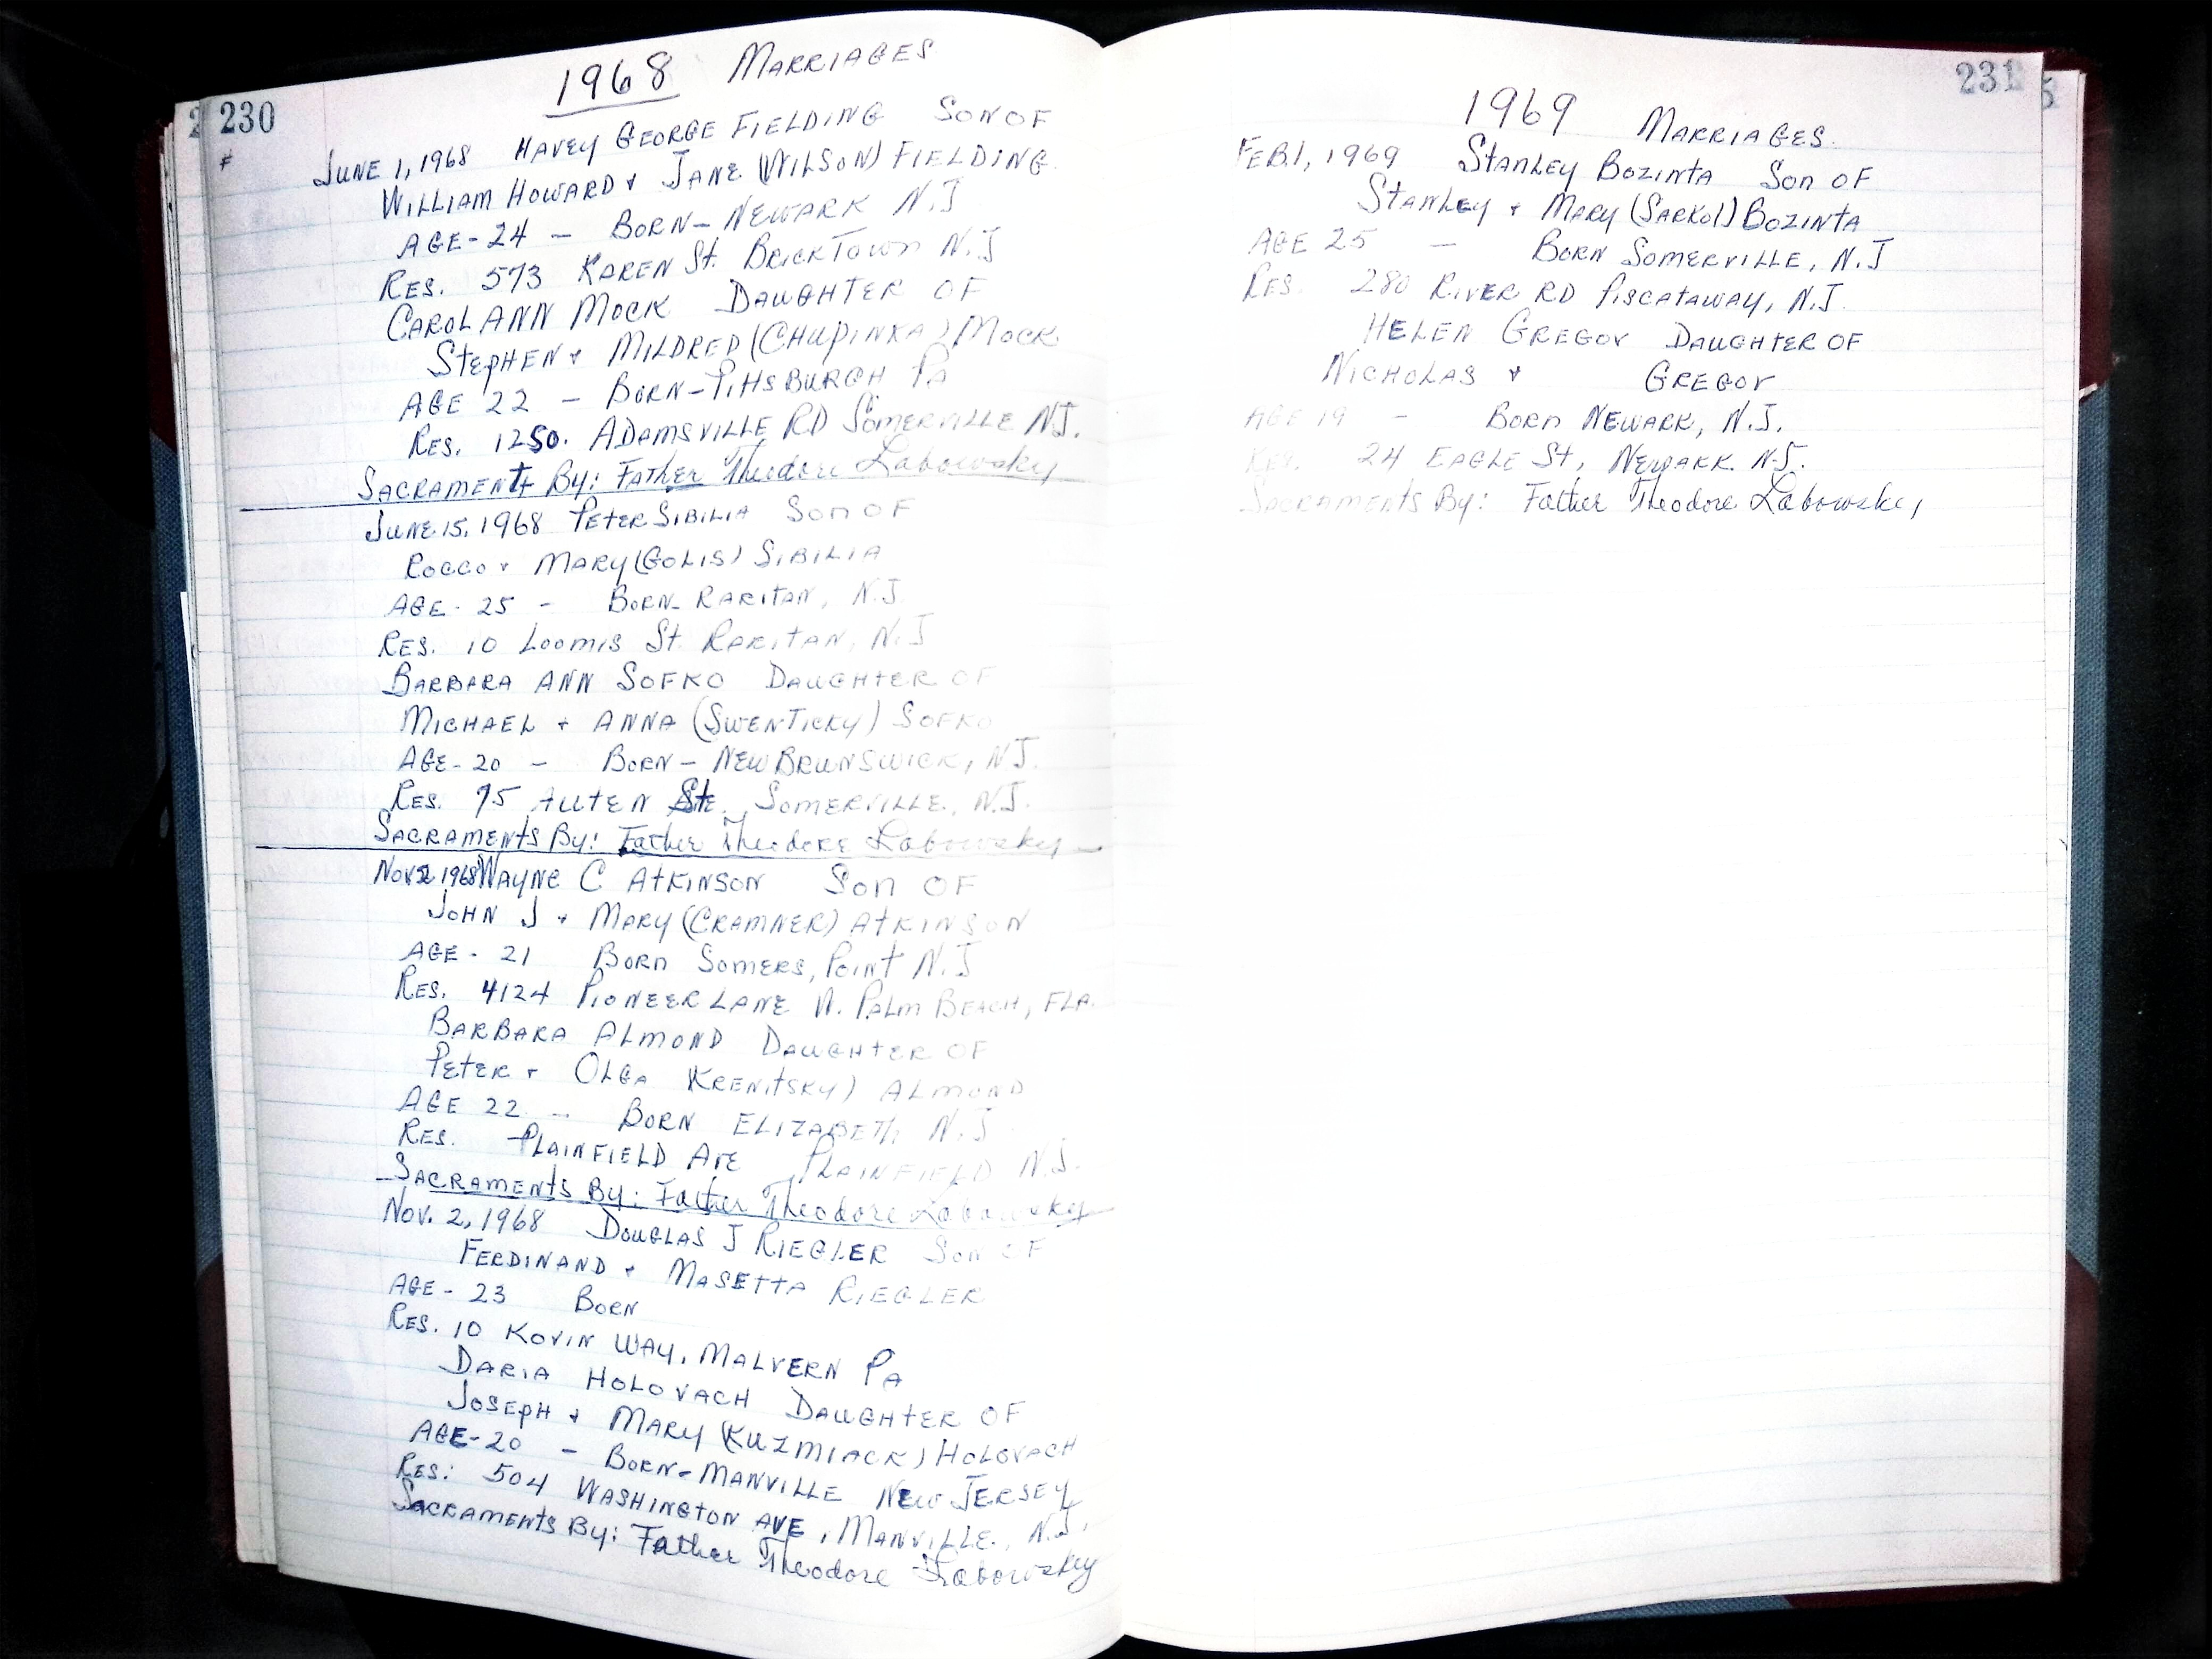 230
1968 MARRIAGES
JUNE 1, 1968 HAVEY GEORGE FIELDING SON OF
WILLIAM HOWARD & JANE (WILSON) FIELDING
AGE-24 - BORN- NEWARK N.J
RES. 573 KAREN St. BRICKTOWN N.J
CAROL ANN MOCK DAUGHTER OF
STEPHEN & MILDRED (CHUPINKA) MOCK
AGE 22 - BORN-PITTSBURGH PA
RES. 1250. ADAMSVILLE RD SOMERVILLE NJ.
SACRAMENT By: Father Theodore Labowsky
JUNE 15, 1968 PETER SIBILIA SON OF
ROCCO & MARY (GOLIS) SIBILIA
AGE- 25 - BORN- RARITAN, N.J.
RES. 10 LOOMIS St. RARITAN, N.J
BARBARA ANN SOFKO DAUGHTER OF
MICHAEL & ANNA (SWENTICKY) SOFKO
AGE-20 - BORN- NEW BRUNSWICK, NJ.
RES. 95 AUTEN SOMERVILLE, N.J.
SACRAMENTS By: Father Theodore Labowsky
NOV 2 1968 WAYNE C ATKINSON SON OF
JOHN J & MARY (CRAMNER) ATKINSON
AGE- 21 BORN SOMERS, POINT N.J
RES. 4124 PIONEER LANE W. PALM BEACH, FLA.
BARBARA ALMOND DAUGHTER OF
PETER & OLGA KRENITSKY) ALMOND
AGE 22 - BORN ELIZABETH N.J
RES. PLAINFIELD AVE PLAINFIELD N.J.
SACRAMENTS By: Father Theodore Labowsky
NOV. 2, 1968 DOUGLAS J RIEGLER SON OF
FERDINAND & MASETTA RIEGLER
AGE- 23 BORN
RES. 10 KOVIN WAY, MALVERN PA
DARIA HOLOVACH DAUGHTER OF
JOSEPH & MARY (KUZMIACK) HOLOVACH
AGE-20 - BORN-MANVILLE NEW JERSEY
RES: 504 WASHINGTON AVE, MANVILLE., N.J.
SACRAMENTS By: Father Theodore Labowsky
231
1969 MARRIAGES.
FEB. 1, 1969 STANLEY BOZINTA SON OF
STANLEY & MARY (SARKOL) BOZINTA
AGE 25 - BORN SOMERVILLE, N.J
RES. 280 RIVER RD PISCATAWAY, N.J.
HELEN GREGOV DAUGHTER OF
NICHOLAS & GREGOV
AGE 19 - BORN NEWARK, N.J.
RES. 24 EAGLE St, NEWARK N.J.
SACRAMENTS By: Father Theodore Labowsky